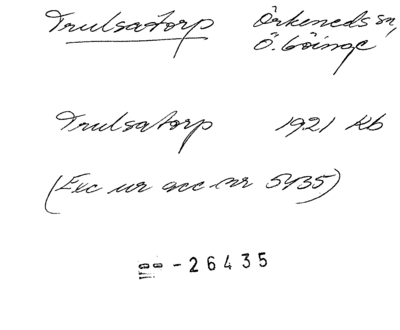 Trulsatorp Örkeneds sn,
Ö. Göinge
Trulsatorp 1921 Kb
(Exc ur acc nr 5435)
-26435